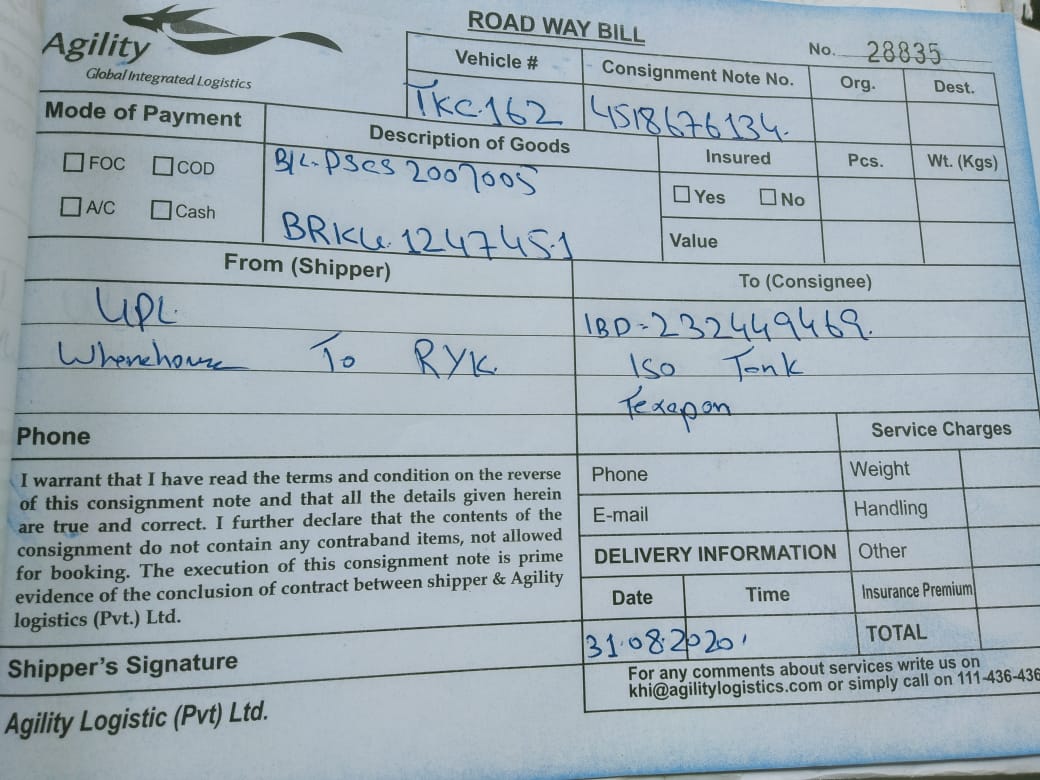 Agility
Global Integrated Logistics
ROAD WAY BILL
No. 28835
Vehicle #
Consignment Note No.
Org.
Dest.
TKC.162
4518676134.
Mode of Payment
FOC
COD
A/C
Cash
Description of Goods
B/L-PSCS 2007005
BRKU.1247451
Insured
Yes
No
Value
Pcs.
Wt. (Kgs)
From (Shipper)
UPL
Wherehouse To RYK.
Phone
To (Consignee)
IBD-232449469.
Iso Tank
Texapon
Phone
E-mail
Service Charges
Weight
Handling
Other
Insurance Premium
TOTAL
I warrant that I have read the terms and condition on the reverse
of this consignment note and that all the details given herein
are true and correct. I further declare that the contents of the
consignment do not contain any contraband items, not allowed
for booking. The execution of this consignment note is prime
evidence of the conclusion of contract between shipper & Agility
logistics (Pvt.) Ltd.
DELIVERY INFORMATION
Date
Time
31.08.2020
Shipper's Signature
For any comments about services write us on
khi@agilitylogistics.com or simply call on 111-436-436
Agility Logistic (Pvt) Ltd.